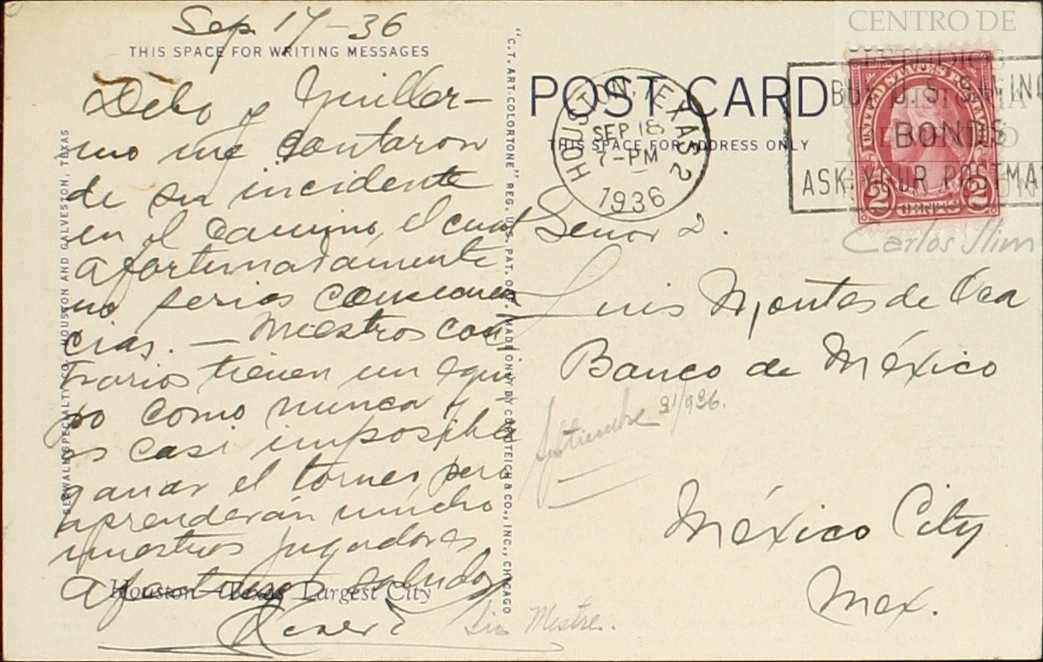 Sep 17-36
THIS SPACE FOR WRITING MESSAGES
y Guiller-
mo me contaron
de su incidente
en el camino, el cual
afortunadamente
no serias consecuen
cias. — Nuestros con
trarios tienen un equi
po como nunca y
es casi imposible
ganar el torneo pero
aprenderán mucho
nuestros jugadores
saludos
Houston - Texas' Largest City
"C.T. ART-COLORTONE" REG. U.S. PAT. OFF. MADE ONLY BY CURT TEICH & CO., INC., CHICAGO
SPECIALTY CO., HOUSTON AND GALVESTON, TEXAS
POST CARD
THIS SPACE FOR ADDRESS ONLY
HOUSTON, TEXAS 2
SEP 18
7-PM
1936
BUY U.S. SAVING
BONDS
ASK YOUR POSTMA
UNITED STATES POSTAGE
2 CENTS 2
CENTRO DE
ESTUDIOS
Carlos Slim
Señor D.
Luis Montes de Oca
Banco de México
Septiembre 21/936.
México City
Mex.
Mestre.